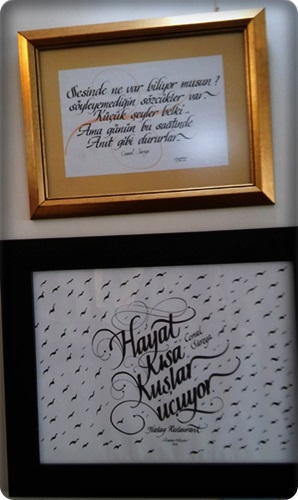 Sesinde ne var biliyor musun?
söyleyemediğin sözcükler var
Küçük şeyler belki
Ama günün bu saatinde
Anıt gibi dururlar
Cemal Süreya
Hayat
Kısa
Kuşlar
uçuyor
Cemal
Süreya
Hatay Restaurant